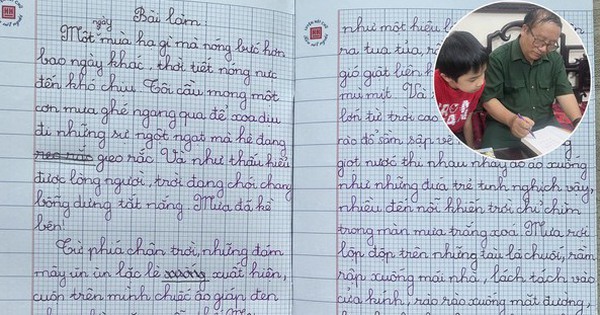 Bài làm:
ngày
Một mùa hạ gì mà nóng bức hơn
bao ngày khác, thời tiết nóng nực
đến khó chịu. Tôi cầu mong một
cơn mưa ghé ngang qua để xoa dịu
đi những sự ngột ngạt mà hè đang
gieo rắc. Và như thấu hiểu
được lòng người, trời đang chói chang
bỗng dưng tắt nắng. Mưa đã kề
bên!
Từ phía chân trời, những đám
mây ùn ùn lặc lè xuất hiện,
cuốn trên mình chiếc áo giáp đen
như một hiệu
ra, tua tủa,
gió giật liên
mù mịt. Và
lớn từ trời cao
rào đổ sầm sập về
giọt nước thi nhau nhảy ào ào xuống
như những đứa trẻ tinh nghịch vậy,
nhiều đến nỗi khiến trời chỉ chìm
trong màn mưa trắng xoá. Mưa rơi
lộp độp trên những tàu lá chuối, rầm
rập xuống mái nhà, lách tách vào
cửa kính, rào rào xuống mặt đường,